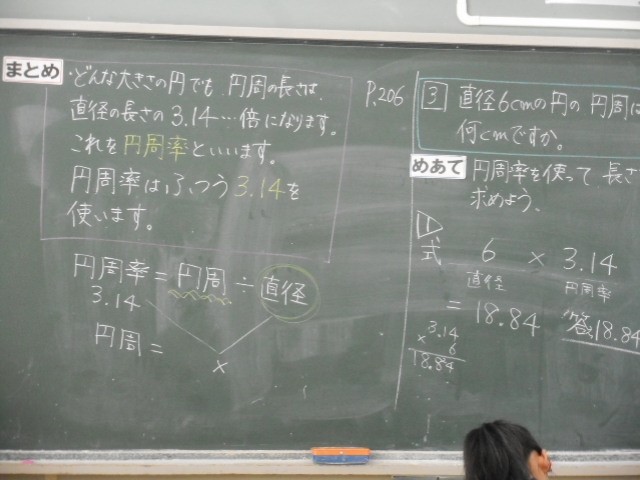 まとめ
・どんな大きさの円でも、円周の長さは、
直径の長さの3.14…倍になります。
これを円周率といいます。
円周率はふつう3.14を
使います。
円周率=円周÷直径
3.14
円周=
×
P.206
3 直径6cmの円の円周は
何cmですか。
めあて 円周率を使って長さ
求めよう。
1
式 6 × 3.14
直径 円周率
= 18.84 答18.84
3.14
× 6
18.84